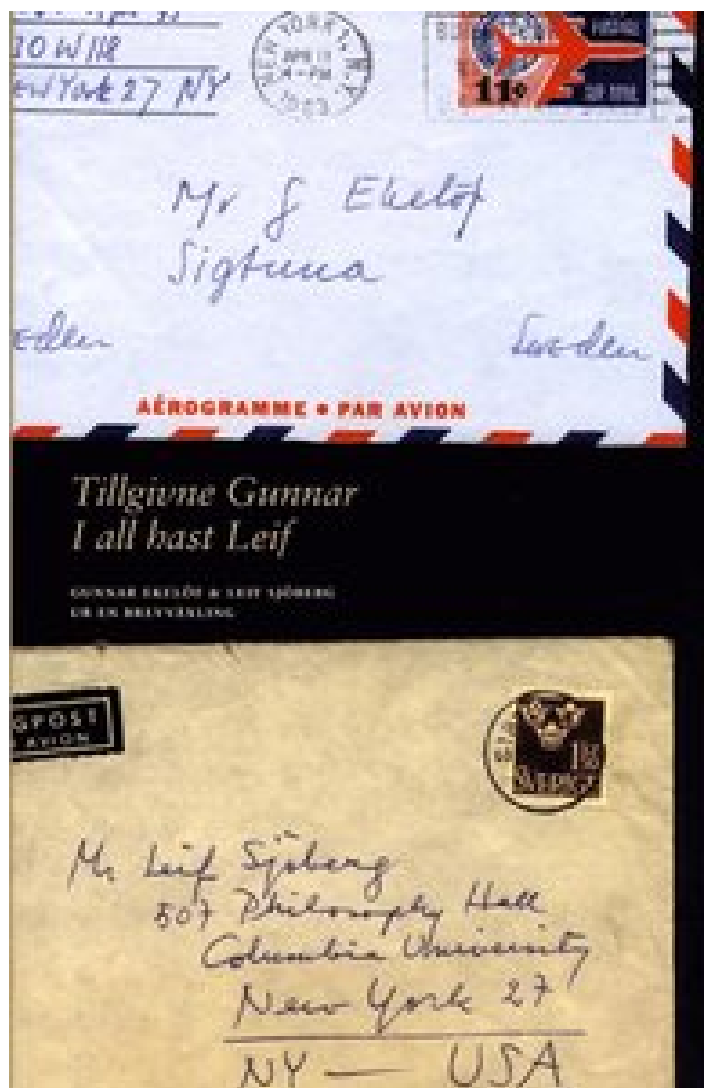 W 118
New York 27 NY
NEW YORK 1, N.Y.
APR
-PM
11¢
AIR MAIL
Mr G Ekelöf
Sigtuna
eden
Sweden
AÉROGRAMME • PAR AVION
Tillgivne Gunnar
I all hast Leif
GUNNAR EKELÖF & LEIF SJÖBERG
UR EN BREVVÄXLING
GPOST
AVION
SVERIGE
Mr Leif Sjöberg
507 Philosophy Hall
Columbia University
New York 27
NY — USA